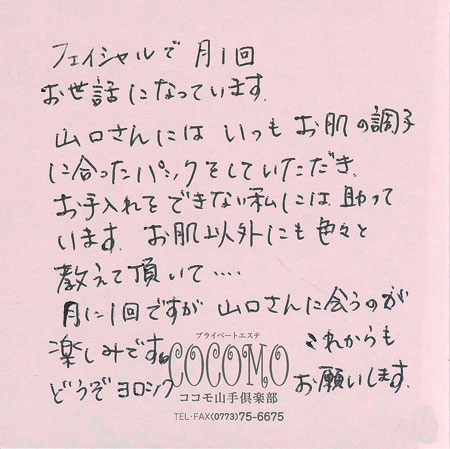 フェイシャルで 月1回
お世話になっています。
山口さんには いつも お肌の調子
に合ったパックをしていただき、
お手入れをできない私には 助かって
います。お肌以外にも色々と
教えて頂いて‥‥
月に1回ですが 山口さんに会うのが
プライベートエステ
楽しみです。 これからも
COCOMO
どうぞヨロシク お願いします。
ココモ山手倶楽部
TEL・FAX(0773)75-6675